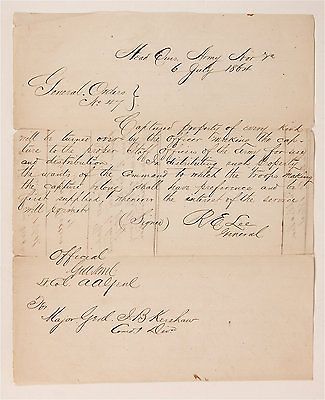 Head Qrs. Army Nor Va
6 July 1864
General Orders }
No 47 }
Captured property of every kind
will be turned over by the officer making the cap-
ture to the proper staff officer of the Army for use
and distribution. In distributing such property
the wants of the Command to which the troops making
the capture belong shall have preference and be
first supplied, whenever the interest of the service
will permit
(Signed) R E Lee
General
Official
Lt Col. A A Genl
For
Major Genl. J. B. Kershaw
Comd'g Div